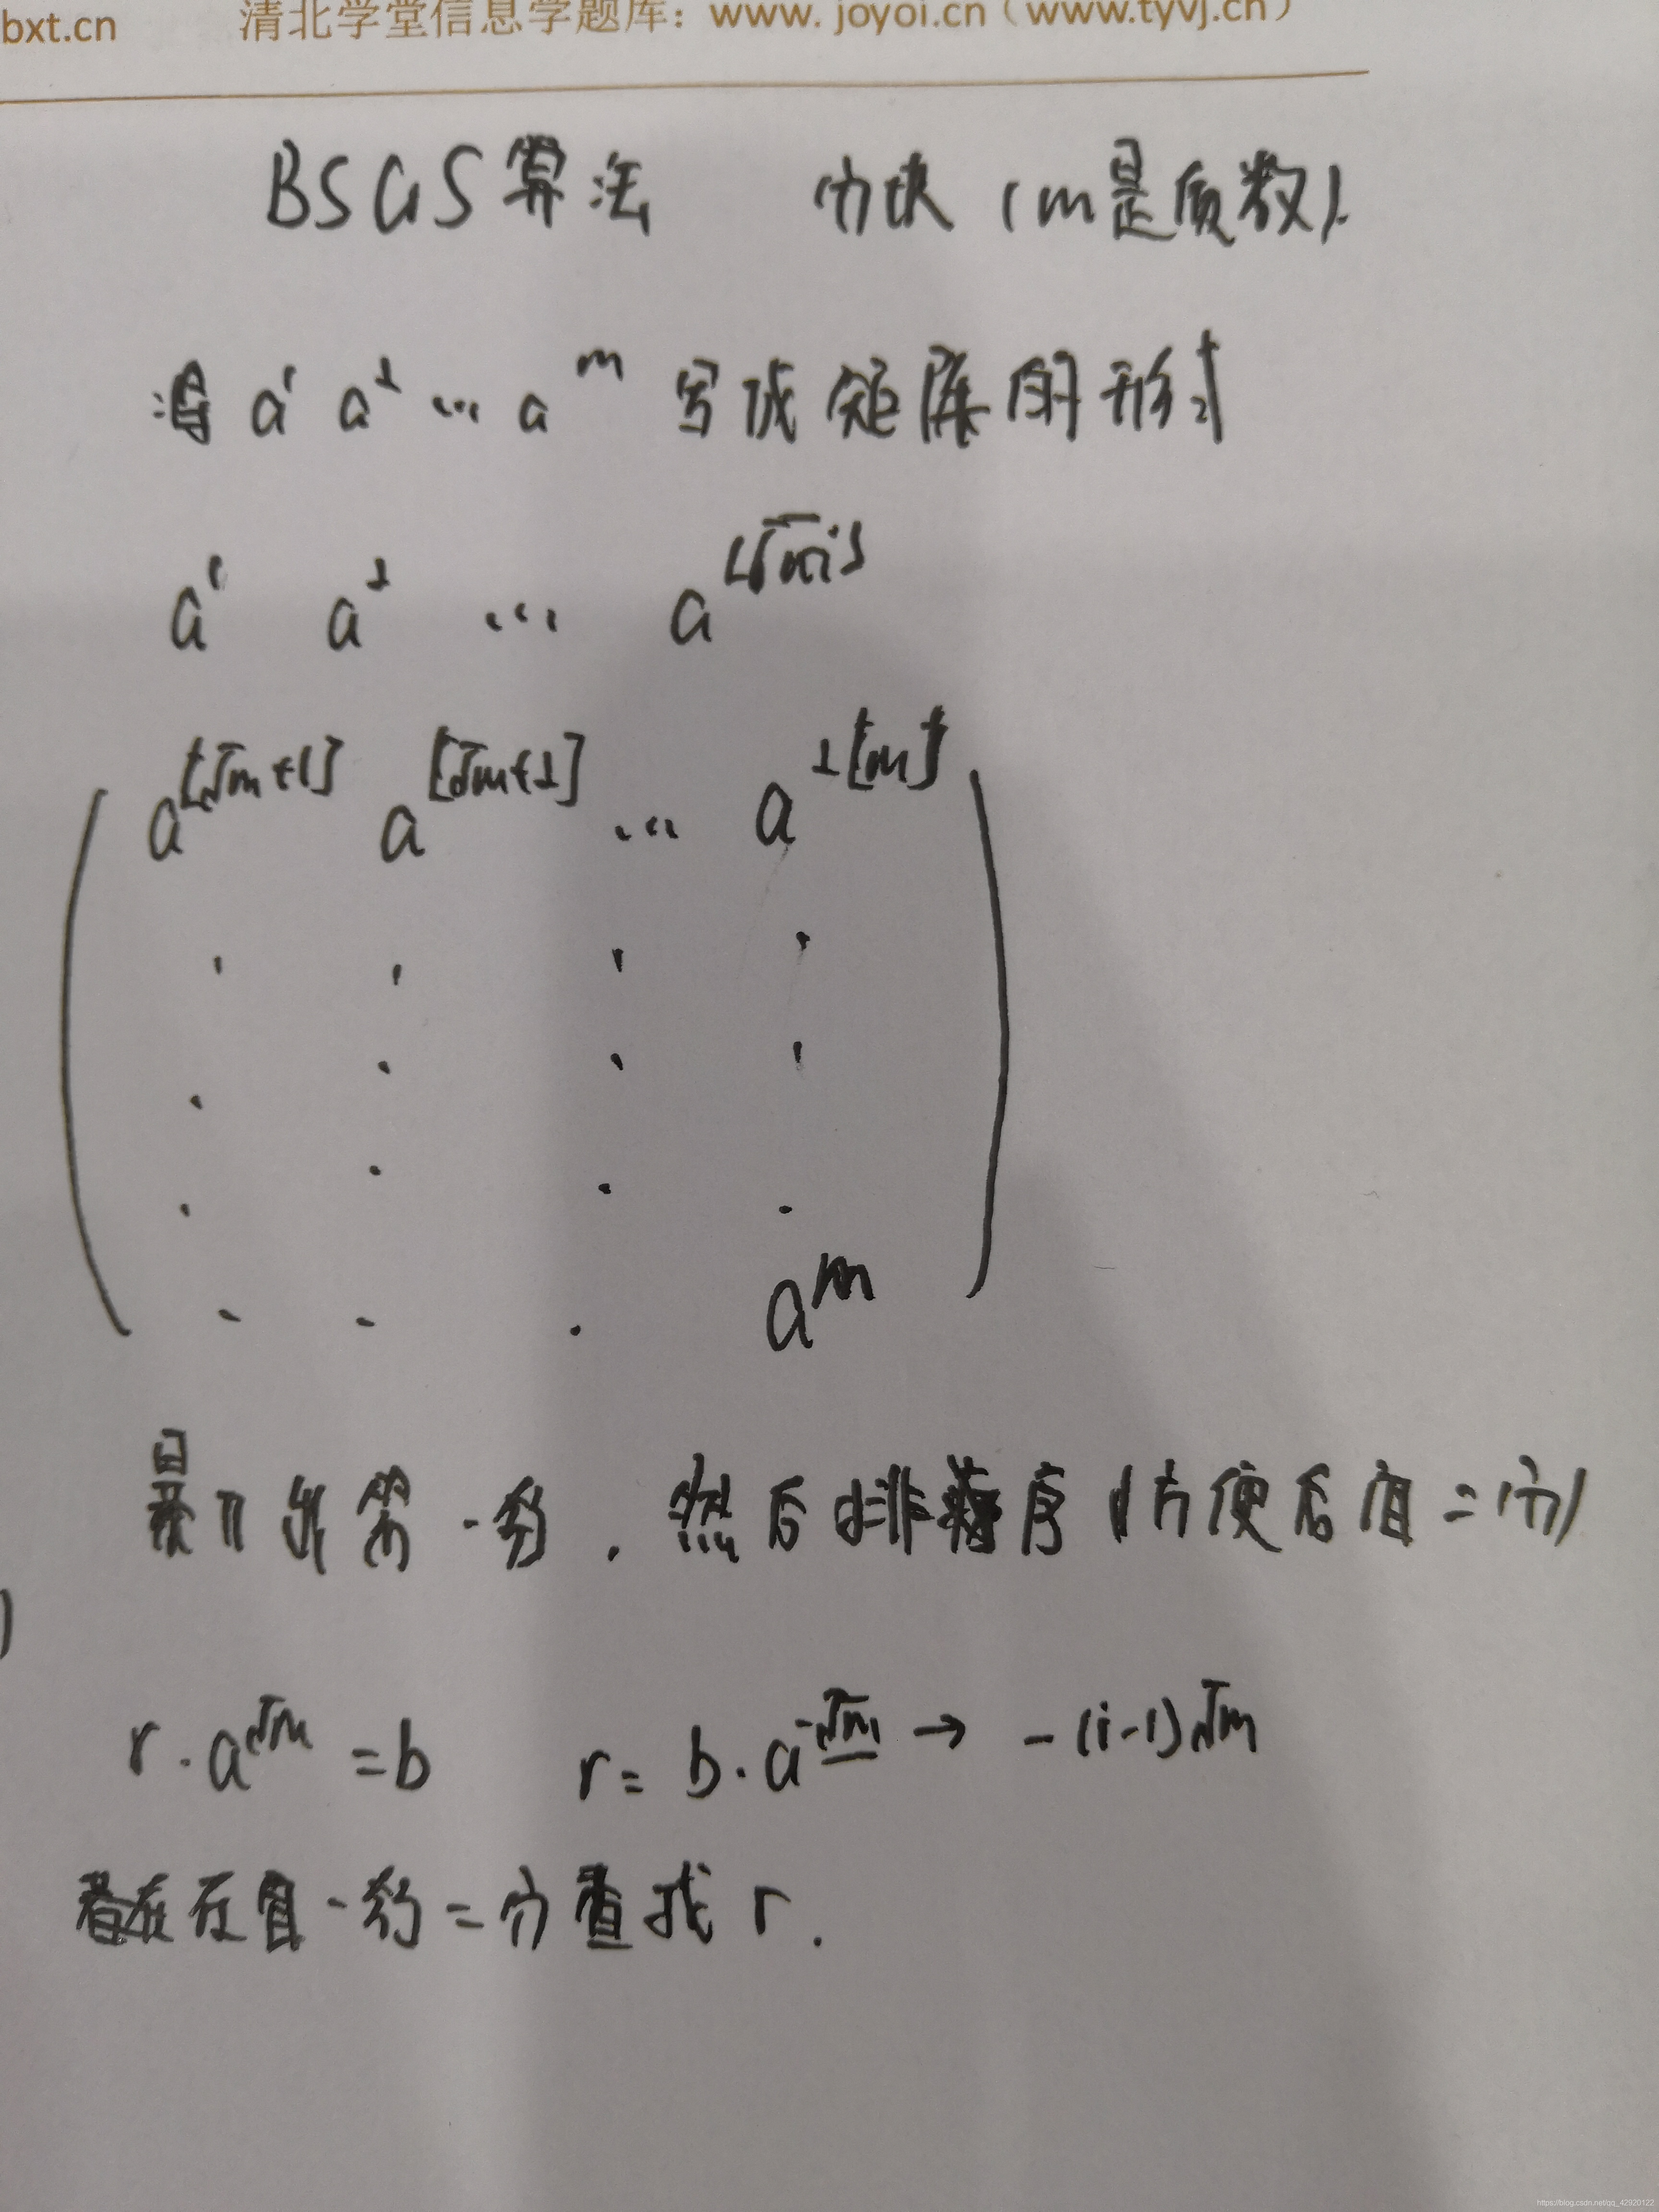 bxt.cn 清北学堂信息学题库：www.joyoi.cn（www.tyvj.cn）
BSGS算法 分块 (m是质数).
a¹ a² ... a^m 写成矩阵的形式
a¹ a² ... a^[√m]
a^[√m+1] a^[√m+2] ... a^2[m]
a^m
暴力出第一行. 然后排序 (方便后面二分)
r·a^√m = b r = b·a^-√m → -(i-1)√m
在第一行二分查找 r.
https://blog.csdn.net/qq_42920122